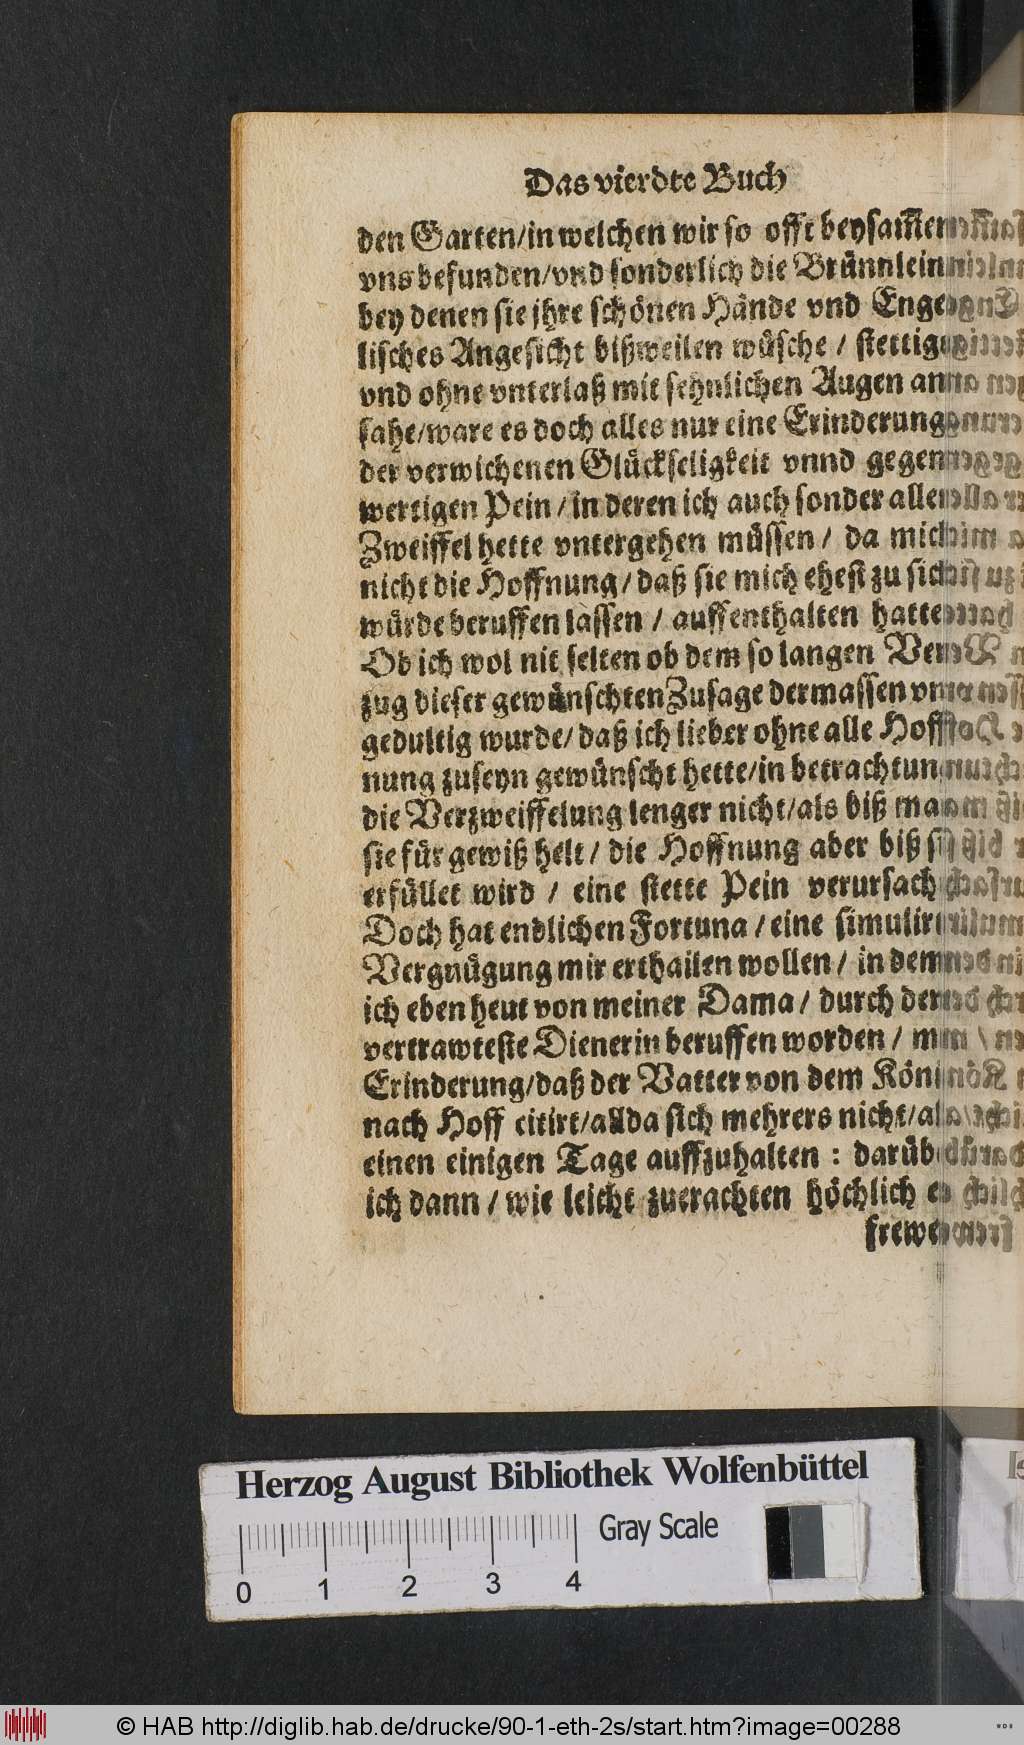 Das vierdte Buch
den Garten/in welchen wir so offt beysam̃en
vns befunden/vnd sonderlich die Brünnlein
bey denen sie jhre schönen Hände vnd Enge-
lisches Angesicht bißweilen wüsche / stettig
vnd ohne vnterlaß mit sehnlichen Augen an
sahe/ware es doch alles nur eine Erinderung
der verwichenen Glückseligkeit vnnd gegen-
wertigen Pein / in deren ich auch sonder allen
Zweiffel hette vntergehen müssen / da mich
nicht die Hoffnung / daß sie mich ehest zu sich
würde beruffen lassen / auffenthalten hatte
Ob ich wol nit selten ob dem so langen Ver-
zug dieser gewünschten Zusage dermassen vn-
gedultig wurde/ daß ich lieber ohne alle Hoff-
nung zuseyn gewünscht hette/in betrachtung
die Verzweiffelung lenger nicht/als biß man
sie für gewiß helt / die Hoffnung aber biß sie
erfüllet wird / eine stette Pein verursach
Doch hat endlichen Fortuna / eine simulirt
Vergnügung mir erthailen wollen / in dem
ich eben heut von meiner Dama / durch der
vertrawteste Dienerin beruffen worden / mit
Erinderung/daß der Vatter von dem König
nach Hoff citirt/allda sich mehrers nicht/als
einen einigen Tage auffzuhalten : darüb
ich dann / wie leicht zuerachten höchlich er
frewe
Herzog August Bibliothek Wolfenbüttel
Gray Scale
0 1 2 3 4
© HAB http://diglib.hab.de/drucke/90-1-eth-2s/start.htm?image=00288